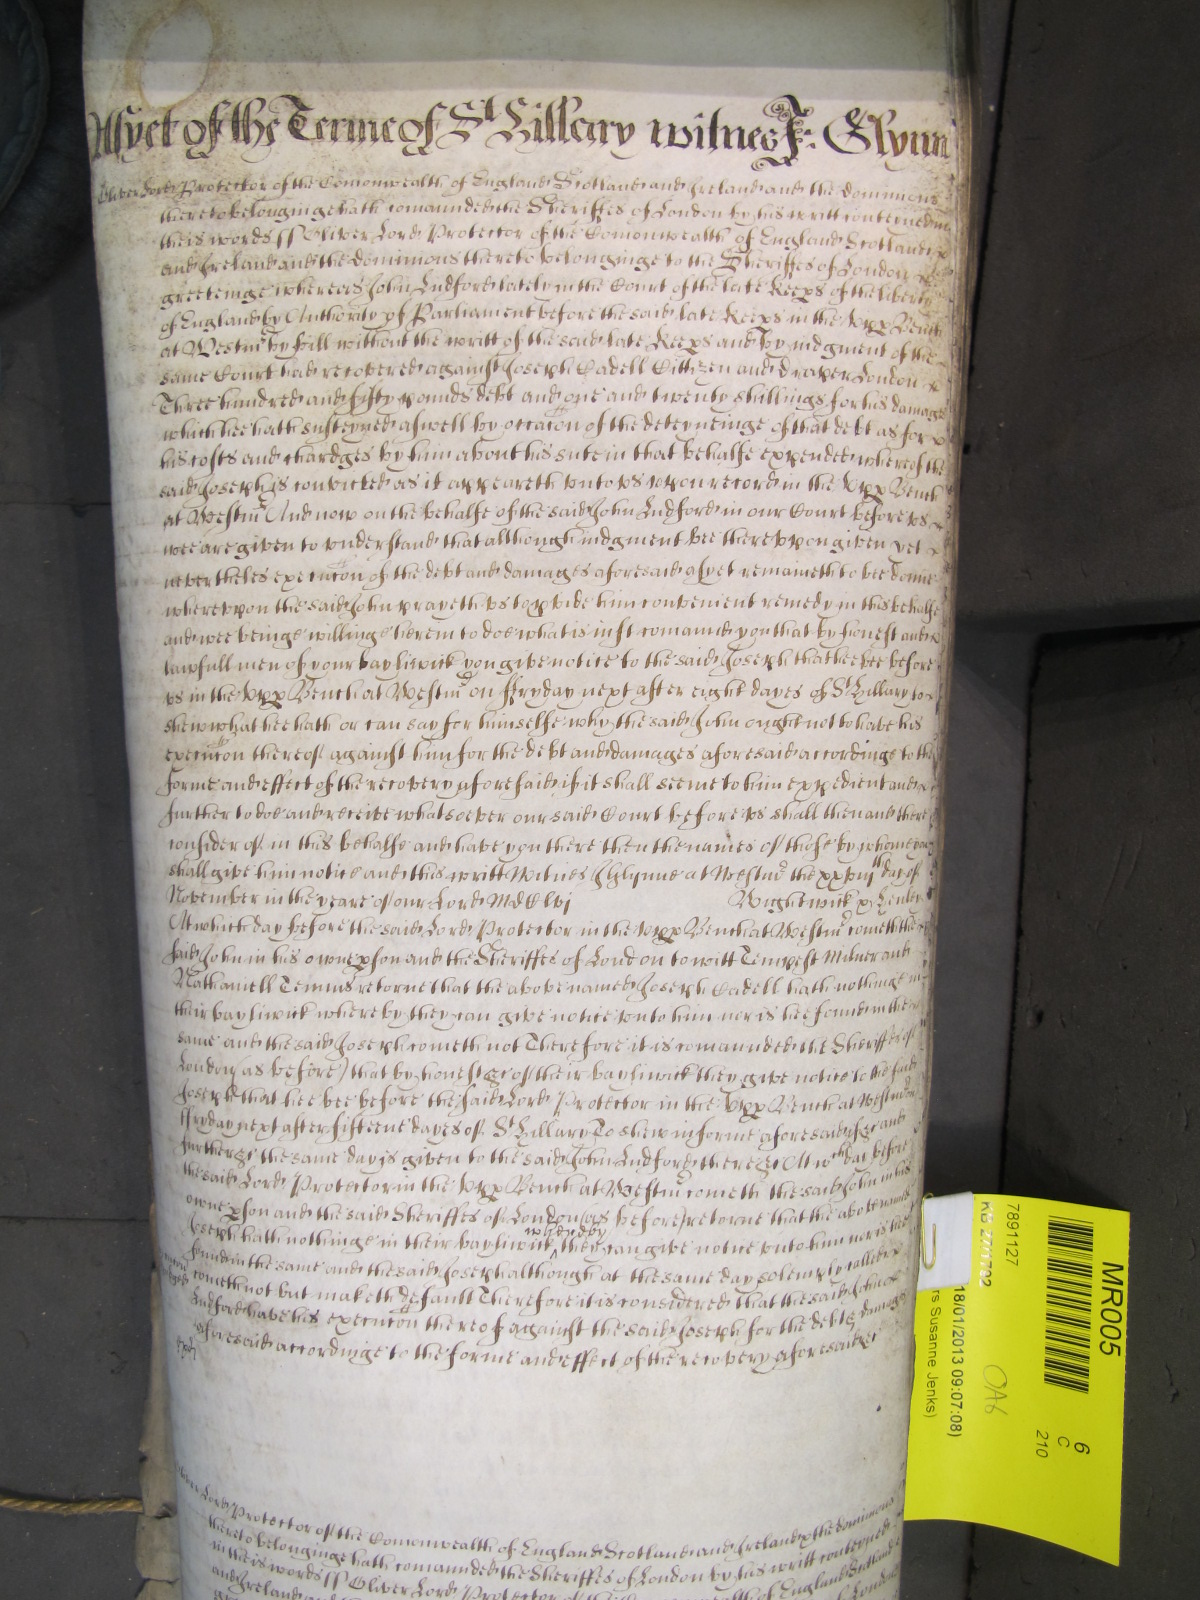 Asyet of the Terme of St Hillary witnes J: Glynn
Oliver Lord Protector of the Comonwealth of England Scotland and Ireland and the dominions
thereto belonginge hath comaunded the Sheriffes of London by his writt conteyned in
theis words ss Oliver Lord Protector of the Comonwealth of England Scotland
and Ireland and the dominions thereto belonginge to the Sheriffes of London
greetinge whereas John Ludford lately in the Court of the late Keeps of the liberty
of England by Authority of Parliament before the said late Keeps in the Upp Bench
at Westmr by bill without the writt of the said late Keeps and by judgment of the
same Court had recovered against Joseph Cadell Cittizen and draper London
Three hundred and fifty pounds debt and one and twenty shillings for his damages
which hee hath susteyned aswell by occacon of the deteyneinge of that debt as for
his costs and chardges by him about his sute in that behalfe expended whereof the
said Joseph is convicted as it appeareth unto us upon record in the Upp Bench
at Westmr And now on the behalfe of the said John Ludford in our Court before us
wee are given to understand that although judgment bee thereupon given yet
nevertheles execucon of the debt and damages aforesaid asyet remaineth to bee donne
whereupon the said John prayeth us to pvide him convenient remedy in this behalfe
and wee beinge willinge herein to doe what is just comaund you that by honest and
lawfull men of your bayliwick you give notice to the said Joseph that hee bee before
us in the Upp Bench at Westmr on ffryday next after eight dayes of St Hillary to
shew what hee hath or can say for himselfe why the said John ought not to have his
execucon thereof against him for the debt and damages aforesaid accordinge to the
forme and effect of the recovery aforesaid if it shall seeme to him expedient and
further to doe and receive whatsoever our said Court before us shall then and there
consider of in this behalfe and have you there then the names of those by whome you
shall give him notice and this writt Witnes J Glynne at Westmr the xxviijth day of
November in the yeare of our Lord MdClvj Wightwick p Henley
At which day before the said Lord Protector in the Upp Bench at Westmr cometh the
said John in his owne pson and the Sheriffes of London to witt Tempest Milner and
Nathaniell Temms retorne that the above named Joseph Cadell hath nothinge in
their bayliwick whereby they can give notice unto him nor is hee found in the
same and the said Joseph cometh not Therefore it is comaunded the Sheriffes of
London (as before) that by honest &c of their bayliwick they give notice to the said
Joseph that hee bee before the said Lord Protector in the Upp Bench at Westmr on
ffryday next after fifteene dayes of St Hillary To shew in forme aforesaid &c and
further &c the same day is given to the said John Ludford there &c At wch day before
the said Lord Protector in the Upp Bench at Westmr cometh the said John in his
owne pson and the said Sheriffes of London (as before) retorne that the above named
Joseph hath nothinge in their bayliwick whereby they can give notice unto him nor is hee
found in the same and the said Joseph although at the same day solemnly called
cometh not but maketh default Therefore it is considered that the said John
Ludford have his execucon thereof against the said Joseph for the debt & damages
aforesaid accordinge to the forme and effect of the recovery aforesaid &c
Oliver Lord Protector of the Comonwealth of England Scotland and Ireland & the dominions
thereto belonginge hath comaunded the Sheriffes of London by his writt conteyned
in theis words ss Oliver Lord Protector of the Comonwealth of England Scotland
and Ireland and
MR005
6
C
210
7891127
KB 27/1792
OA6
18/01/2013 09:07:08)
rs Susanne Jenks)